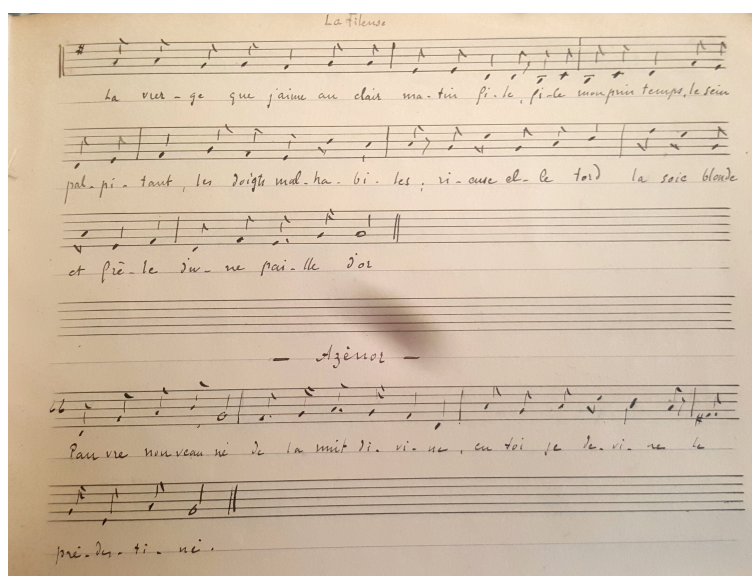 La Fileuse
La vier-ge que j'aime au clair ma-tin fi-le, fi-le mon prin temps, le sein
pal-pi-tant, les doigts mal-ha-bi-les, ri-euse el-le tord la soie blonde
et frê-le d'u-ne pai-lle d'or
- Azénor -
Pau vre nou veau né de la nuit di-vi-ne, en toi je de-vi-ne le
pré-des-ti-né.